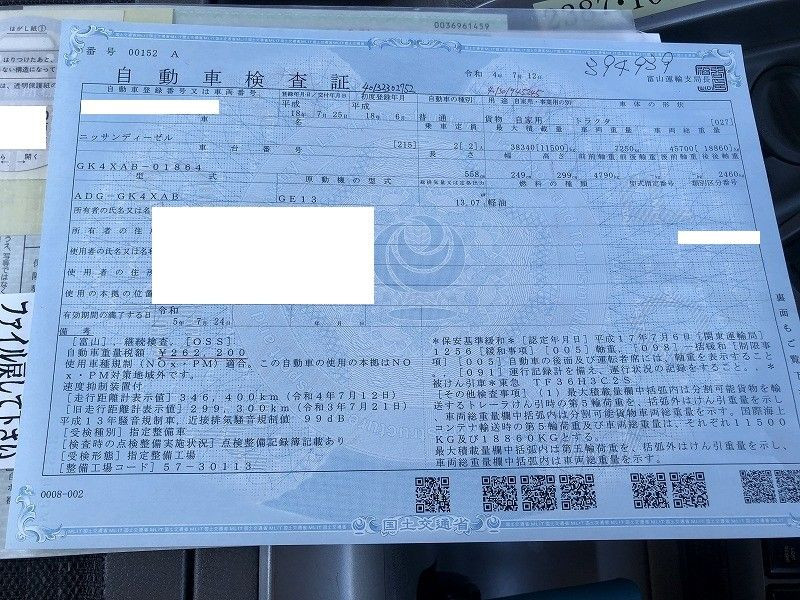 0036961459
2387・10
はがし紙①
はりつけたあと、
ない構造になって
透明保護紙の
開く
番号 00152 A
自動車検査証
40132302752
令和 4年 7月 12日
394939
富山運輸支局長
自動車登録番号又は車両番号 登録年月日/交付年月日 初度登録年月 自動車の種別 用途 自家用・事業用の別 車体の形状
平成 18年 7月 25日 平成 18年 6月 普通 貨物 自家用 トラクタ [027]
車名 乗車定員 最大積載量 車両重量 車両総重量
ニッサンディーゼル [215] 2[ 2]人 38340[11500]kg 7250kg 45700[18860]kg
車台番号 長さ 幅 高さ 前前軸重 前後軸重 後前軸重 後後軸重
GK4XAB-01864 558cm 249cm 299cm 4790kg -kg -kg 2460kg
型式 原動機の型式 総排気量又は定格出力 燃料の種類 型式指定番号 類別区分番号
ADG-GK4XAB GE13 13.07 軽油
所有者の氏名又は名
所有者の住
使用者の氏名又は名称
使用者の住所
使用の本拠の位置
有効期間の満了する日 令和 5年 7月 24日 年 月 日
備考
[富山], 継続検査, [OSS]
自動車重量税額 ¥262,200
使用車種規制(NOx・PM)適合。この自動車の使用の本拠はNO
x・PM対策地域外です。
速度抑制装置付
[走行距離計表示値]346,400km(令和4年7月12日)
[旧走行距離計表示値]299,300km(令和3年7月21日)
平成13年騒音規制車, 近接排気騒音規制値 99dB
[受検種別]指定整備車
[検査時の点検整備実施状況]点検整備記録簿記載あり
[受検形態]指定整備工場
[整備工場コード]57-30113
*保安基準緩和*[認定年月日]平成17年7月6日[関東運輸局]
1256[緩和事項][005]軸重、[098]・積緩和[制限事
項][005]自動車の後面及び運転者席には、軸重を表示すること
[091]運行記録計を備え、運行状況の記録をすること。
被けん引車*東急 TF36H3C2S
[その他検査事項](1)最大積載量欄中括弧内は分割可能貨物を輸
送するトレーラけん引時の第5輪荷重を、括弧外はけん引重量を示し
、車両総重量欄中括弧内は分割可能貨物車両総重量を示す。国際海上
コンテナ輸送時の第5輪荷重及び車両総重量は、それぞれ11500
KG及び18860KGとする。
最大積載量欄中括弧内は第五輪荷重を、括弧外はけん引重量を示し、
車両総重量欄中括弧内は車両総重量を示す。
0008-002
国土交通省
裏面もご覧
ファイル戻して下さい